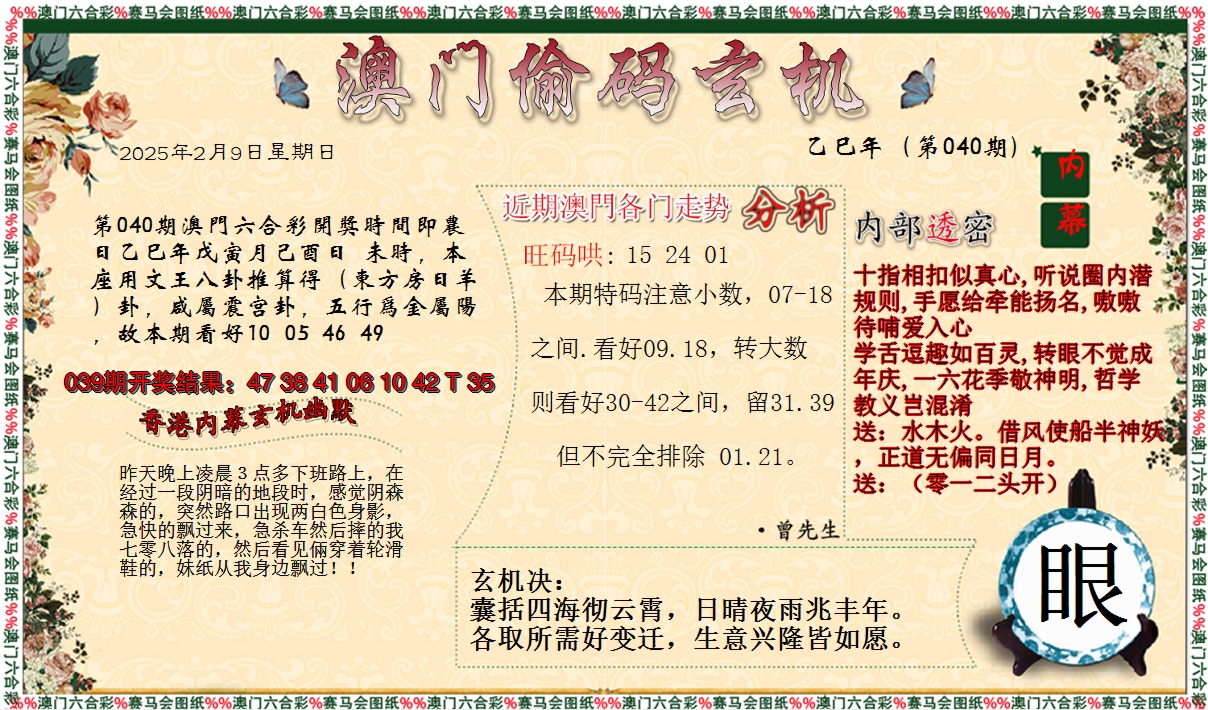 %%澳门六合彩%赛马会图纸%%澳门六合彩%赛马会图纸%%澳门六合彩%赛马会图纸%%澳门六合彩%赛马会图纸%%澳门六合彩%赛马会图纸%%澳门六合彩%赛马会图纸%%
澳门偷码玄机
2025年2月9日星期日
乙巳年（第040期）
内幕
第040期澳門六合彩開獎時間即農
日乙巳年戊寅月己酉日 未時，本
座用文王八卦推算得（東方房日羊
）卦，咸屬震宫卦，五行爲金屬陽
，故本期看好10 05 46 49
039期开奖结果：47 38 41 06 10 42 T 35
香港内幕玄机幽默
昨天晚上凌晨３点多下班路上，在
经过一段阴暗的地段时，感觉阴森
森的，突然路口出现两白色身影，
急快的飘过来，急杀车然后摔的我
七零八落的，然后看见俩穿着轮滑
鞋的，妹纸从我身边飘过！！
近期澳門各门走势 分析
旺码哄: 15 24 01
本期特码注意小数，07-18
之间.看好09.18，转大数
则看好30-42之间，留31.39
但不完全排除 01.21。
·曾先生
内部透密
十指相扣似真心,听说圈内潜
规则,手愿给牵能扬名,嗷嗷
待哺爱入心
学舌逗趣如百灵,转眼不觉成
年庆,一六花季敬神明,哲学
教义岂混淆
送：水木火。借风使船半神妖
，正道无偏同日月。
送：（零一二头开）
玄机决：
囊括四海彻云霄，日晴夜雨兆丰年。
各取所需好变迁，生意兴隆皆如愿。
眼
%%澳门六合彩%赛马会图纸%%澳门六合彩%赛马会图纸%%澳门六合彩%赛马会图纸%%澳门六合彩%赛马会图纸%%澳门六合彩%赛马会图纸%%澳门六合彩%赛马会图纸%%